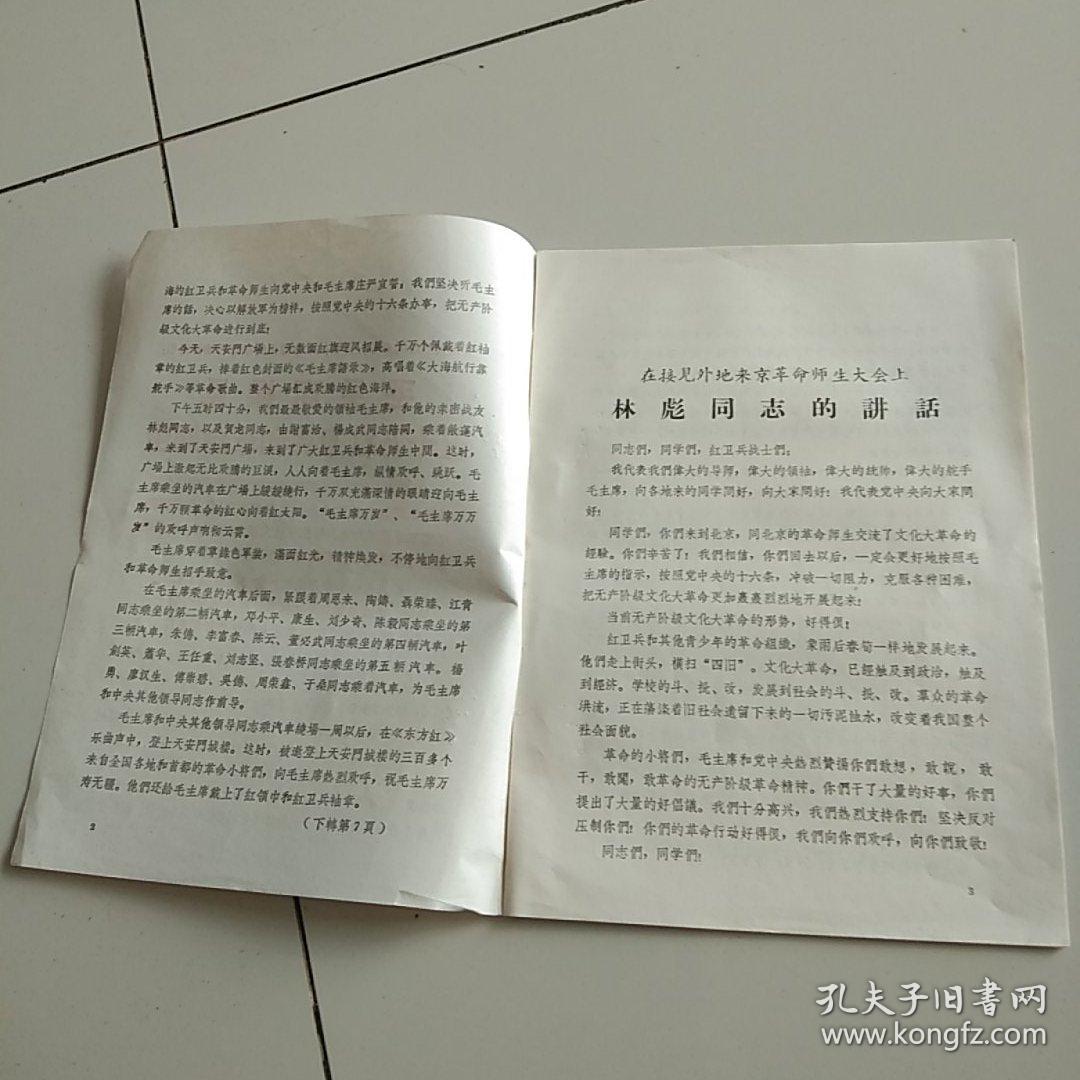 海的紅卫兵和革命师生向党中央和毛主席庄严宣誓：我們坚决听毛主
席的話，决心以解放军为榜样，按照党中央的十六条办事，把无产阶
級文化大革命进行到底！
今天，天安門广場上，无数面紅旗迎风招展。千万个佩戴着紅袖
章的紅卫兵，捧着紅色封面的《毛主席語录》，高唱着《大海航行靠
舵手》等革命歌曲。整个广場汇成欢騰的紅色海洋。
下午五时四十分，我們最最敬爱的領袖毛主席，和他的亲密战友
林彪同志，以及賀龙同志，由謝富治、楊成武同志陪同，乘着敞篷汽
車，来到了天安門广場，来到了广大紅卫兵和革命师生中間。这时，
广場上激起无比欢騰的巨浪，人人向着毛主席，纵情欢呼、跳跃。毛
主席乘坐的汽車在广場上緩緩繞行，千万双充滿深情的眼睛迎向毛主
席，千万顆革命的紅心向着紅太阳。“毛主席万岁”、“毛主席万万
岁”的欢呼声响彻云霄。
毛主席穿着草綠色軍装，滿面紅光，精神焕发，不停地向紅卫兵
和革命师生招手致意。
在毛主席乘坐的汽車后面，紧跟着周恩来、陶鑄、聶荣臻、江青
同志乘坐的第二輛汽車，邓小平、康生、刘少奇、陈毅同志乘坐的第
三輛汽車，朱德、李富春、陈云、董必武同志乘坐的第四輛汽車，叶
剑英、蕭华、王任重、刘志坚、張春桥同志乘坐的第五輛汽車。楊
勇、廖汉生、傅崇碧、吳德、周荣鑫、于桑同志乘着汽車，为毛主席
和中央其他領导同志作前导。
毛主席和中央其他領导同志乘汽車繞場一周以后，在《东方紅》
乐曲声中，登上天安門城楼。这时，被邀登上天安門城楼的三百多个
来自全国各地和首都的革命小将們，向毛主席热烈欢呼，祝毛主席万
寿无疆。他們还給毛主席戴上了紅領巾和紅卫兵袖章。
（下轉第7頁）
2
在接見外地来京革命师生大会上
林彪同志的講話
同志們，同学們，紅卫兵战士們：
我代表我們偉大的导师，偉大的領袖，偉大的統帅，偉大的舵手
毛主席，向各地来的同学問好，向大家問好！我代表党中央向大家問
好！
同学們，你們来到北京，同北京的革命师生交流了文化大革命的
經驗。你們辛苦了！我們相信，你們回去以后，一定会更好地按照毛
主席的指示，按照党中央的十六条，冲破一切阻力，克服各种困难，
把无产阶級文化大革命更加轟轟烈烈地开展起来！
当前无产阶級文化大革命的形势，好得很！
紅卫兵和其他青少年的革命組織，象雨后春笋一样地发展起来。
他們走上街头，横扫“四旧”。文化大革命，已經触及到政治，触及
到經济。学校的斗、批、改，发展到社会的斗、批、改。羣众的革命
洪流，正在蕩滌着旧社会遺留下来的一切污泥浊水，改变着我国整个
社会面貌。
革命的小将們，毛主席和党中央热烈贊揚你們敢想，敢說，敢
干，敢闖，敢革命的无产阶級革命精神。你們干了大量的好事，你們
提出了大量的好倡議。我們十分高兴，我們热烈支持你們！坚决反对
压制你們！你們的革命行动好得很，我們向你們欢呼，向你們致敬！
同志們，同学們！
3
孔夫子旧書网
www.kongfz.com